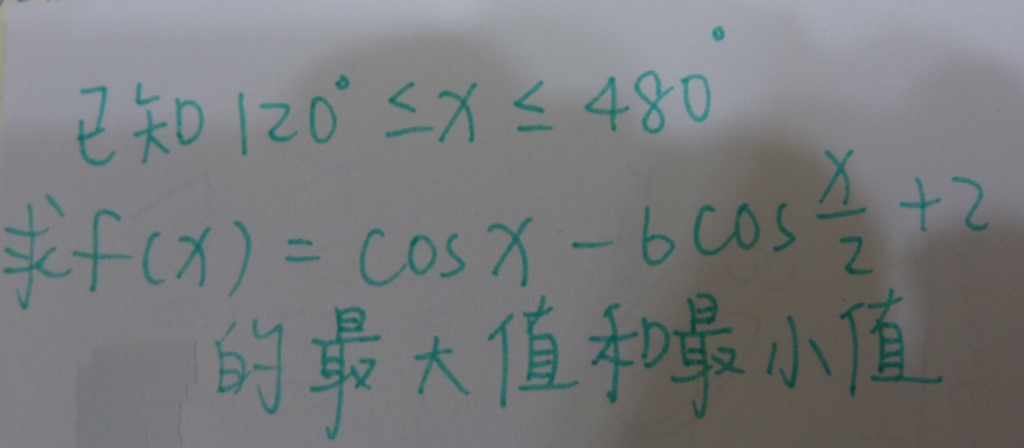 已知120°≤x≤480°
求f(x)=cosx-6cos\frac{x}{2}+2
的最大值和最小值